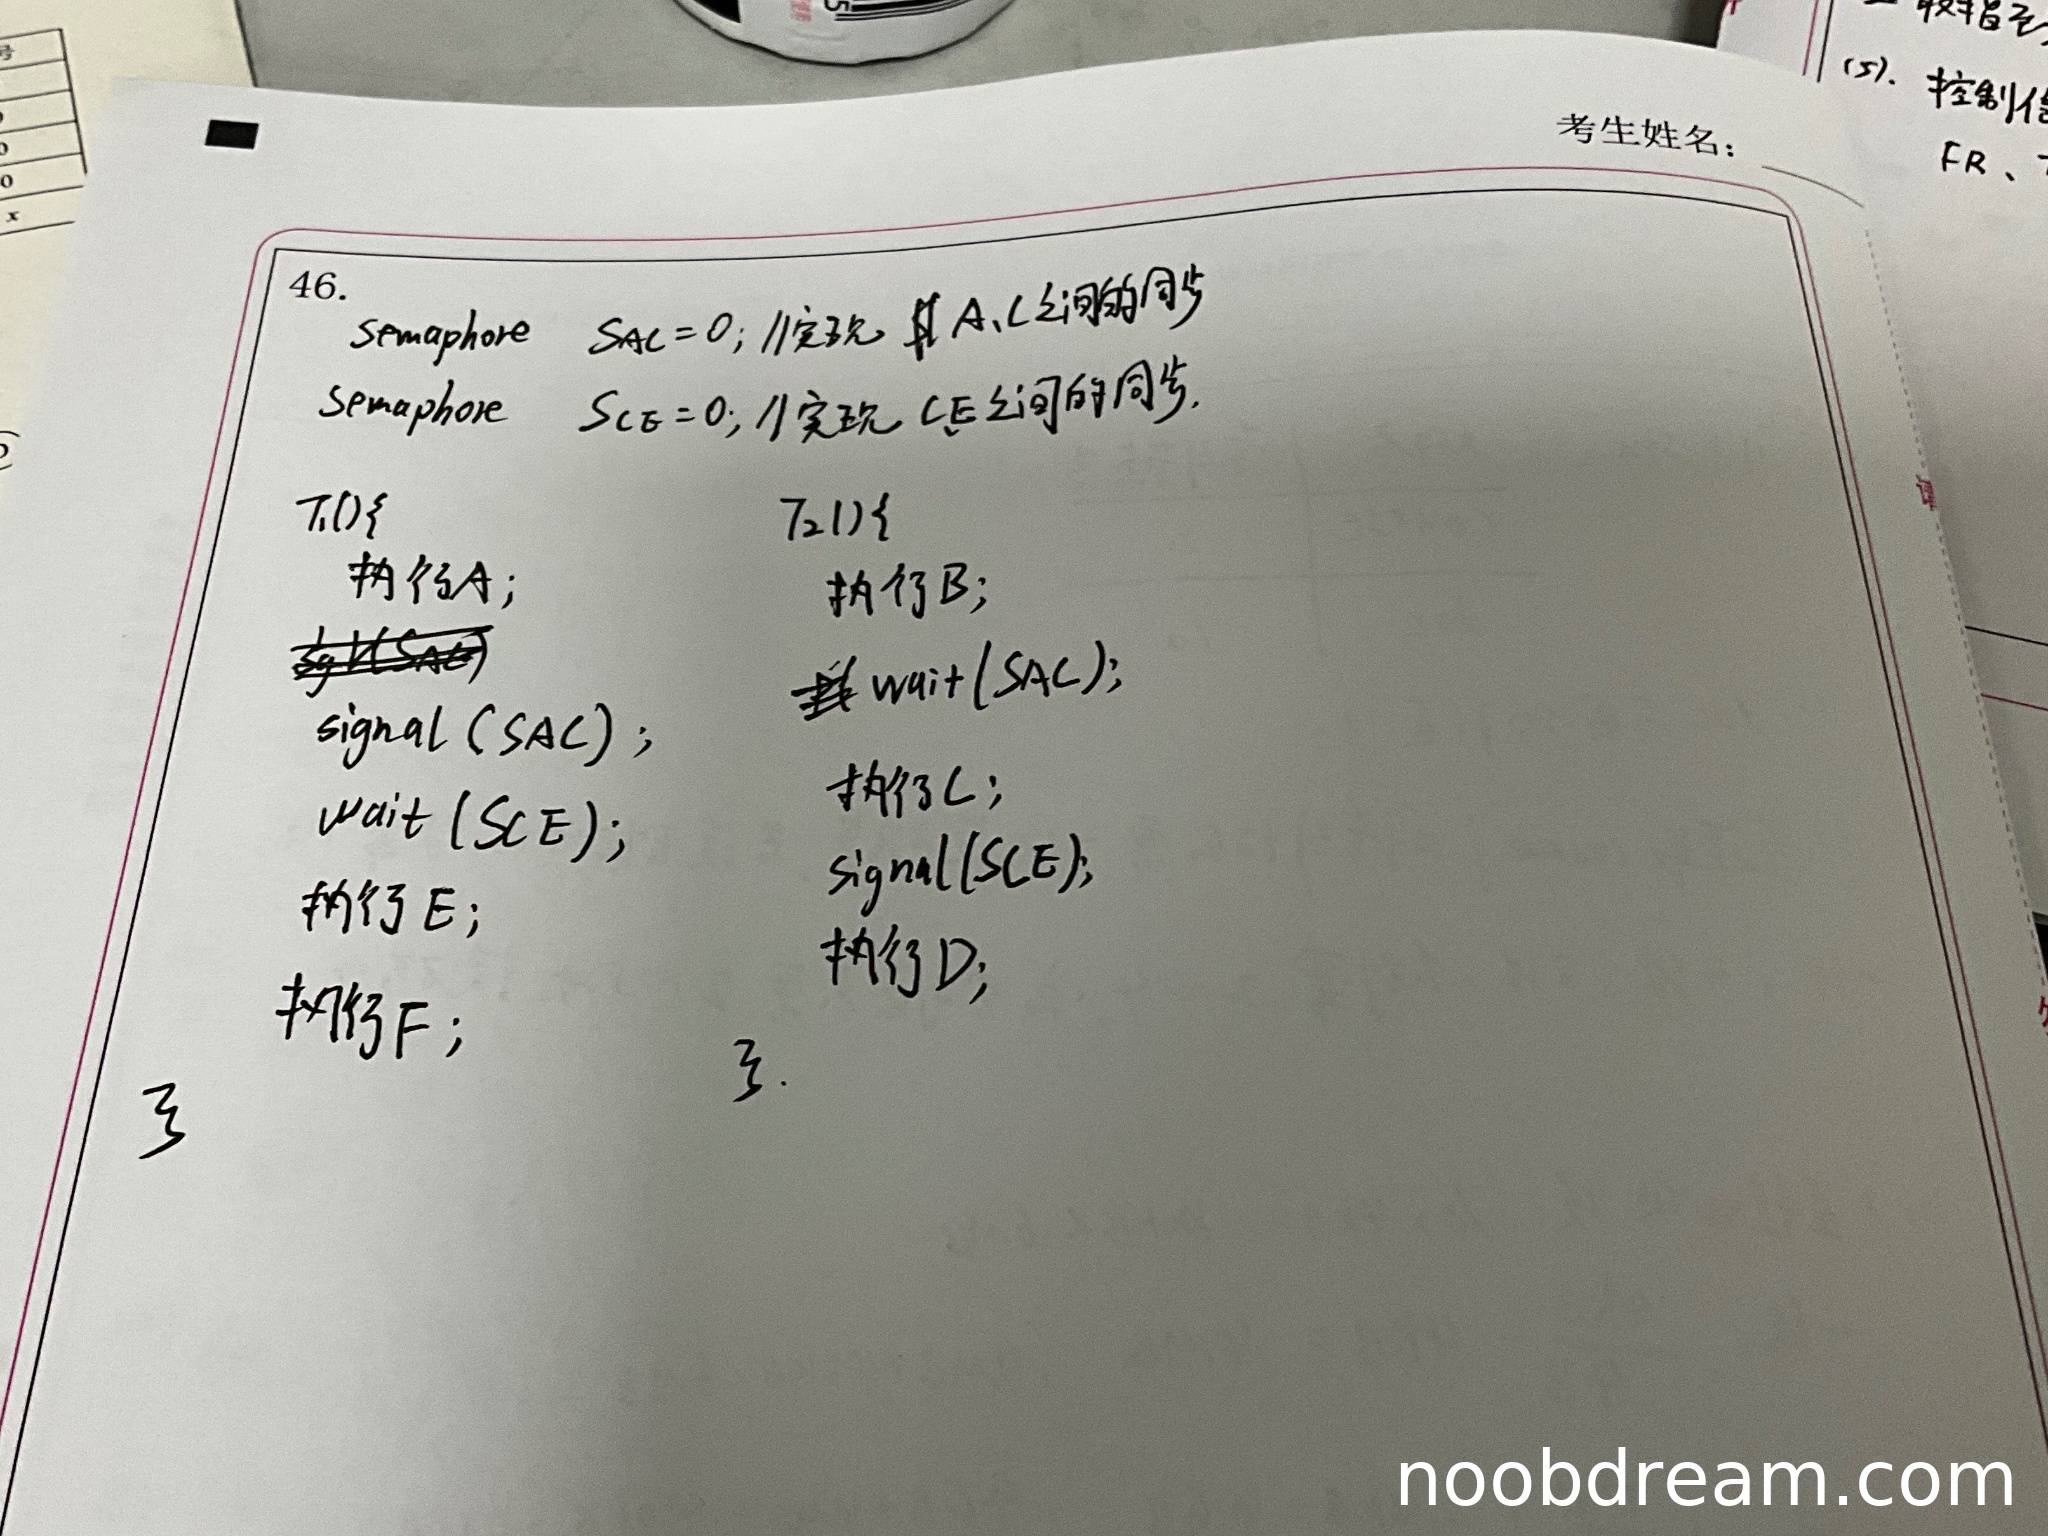 考生姓名：
(5). 控制信
FR、
46.
semaphore SAC=0; //实现 A、C之间的同步
semaphore SCE=0; //实现 C、E之间的同步.
T1(){
执行A;
signal (SAC);
wait (SCE);
执行E;
执行F;
}
T2(){
执行B;
wait(SAC);
执行C;
signal(SCE);
执行D;
}.
noobdream.com